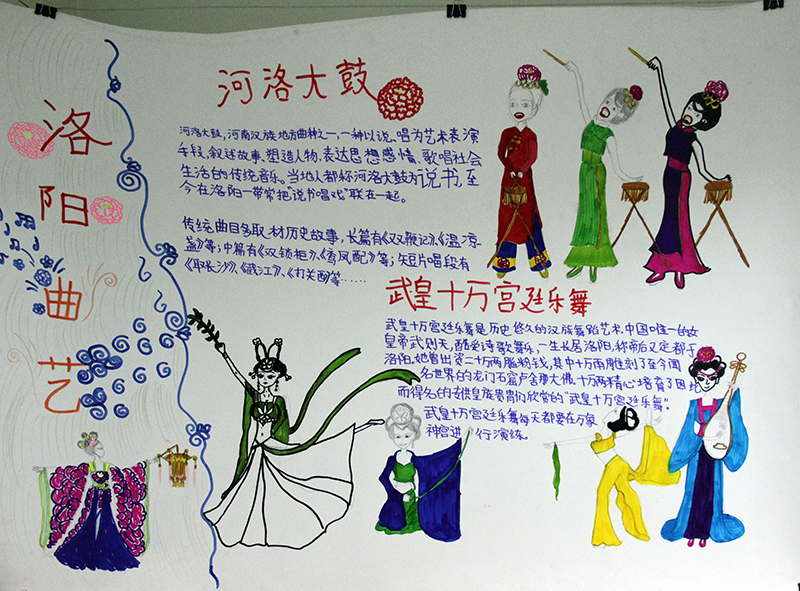 洛
阳
曲
艺
河洛大鼓
河洛大鼓,河南汉族地方曲种之一,一种以说、唱为艺术表演
手段,叙述故事、塑造人物、表达思想感情、歌唱社会
生活的传统音乐。当地人都称河洛大鼓为说书,至
今在洛阳一带常把"说书唱戏"联在一起。
传统曲目多取材历史故事,长篇有《双鞭记》、《温凉
盏》等;中篇有《双锁柜》、《香凤配》等;短片唱段有
《取长沙》、《截江》、《打关西》等……
武皇十万宫廷乐舞
武皇十万宫廷乐舞是历史悠久的汉族舞蹈艺术。中国唯一的女
皇帝武则天,酷爱诗歌舞乐,一生长居洛阳,称帝后又定都于
洛阳。她曾出资二十万两脂粉钱,其中十万两雕刻了至今闻
名世界的龙门石窟卢舍那大佛,十万两精心培育了因此
而得名的女供皇族贵胄们欣赏的"武皇十万宫廷乐舞"。
武皇十万宫廷乐舞每天都要在万象
神宫进行演练。